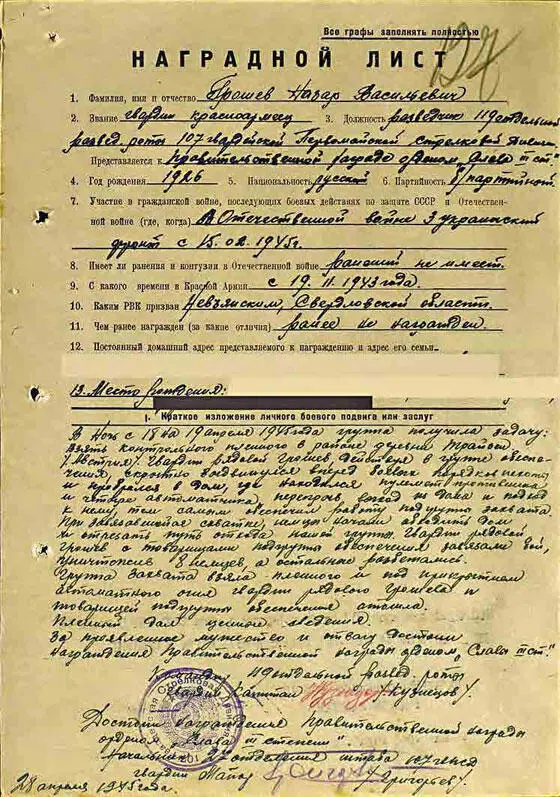 Все графы заполнять полностью
127
НАГРАДНОЙ ЛИСТ
1. Фамилия, имя и отчество Грошев Назар Васильевич
2. Звание гвардии красноармеец 3. Должность разведчик 119 отдельной
развед. роты 107 гвардейской Первомайской стрелковой дивизии
Представляется к правительственной награде орденом, Слава III ст"
4. Год рождения 1926 5. Национальность русский 6. Партийность б/партийной
7. Участие в гражданской войне, последующих боевых действиях по защите СССР и Отечествен-
ной войне (где, когда) В Отечественной войне 3 украинский
фронт с 15.02.1945г.
8. Имеет ли ранения и контузии в Отечественной войне ранений не имеет.
9. С какого времени в Красной Армии с 19.11.1943 года.
10. Каким РВК призван Невьянским, Свердловской области.
11. Чем ранее награжден (за какие отличия) ранее не награжден.
12. Постоянный домашний адрес представляемого к награждению и адрес его семьи
13. Место рождения:
I. Краткое изложение личного боевого подвига или заслуг
В ночь с 18 на 19 апреля 1945 года группа получила задачу:
Взять контрольного пленного в районе деревни Трайсен
/Австрия/. Гвардии рядовой Грошев, действуя в группе обеспе-
чения, скрытно выдвинулся вперед боевых порядков пехоты
и пробрался к дому, где находился пулемет противника
и четыре автоматчика, перекрыв выход из дома и подход
к нему, тем самым обеспечил работу подгруппы захвата.
При завязавшейся схватке, немцы начали обходить дом
и отрезать путь отхода нашей группы. Гвардии рядовой
Грошев с товарищами подгруппы обеспечения завязали бой,
уничтожив 8 немцев, а остальные разбежались.
Группа захвата взяла пленного и под прикрытием
автоматного огня гвардии рядового Грошева и
товарищей подгруппы обеспечения отошла.
Пленный дал ценные сведения.
За проявленное мужество и отвагу достоин
награждения Правительственной награды орденом, "Слава III ст"
Командир 119 отдельной развед. роты
гвардии капитан /Кузнецов/.
Достоин награждения правительственной награды
орденом "Слава III степени"
Начальник 2 отделения штаба 107 гвсд
гвардии майор /Григорьев/.
28 апреля 1945 года.